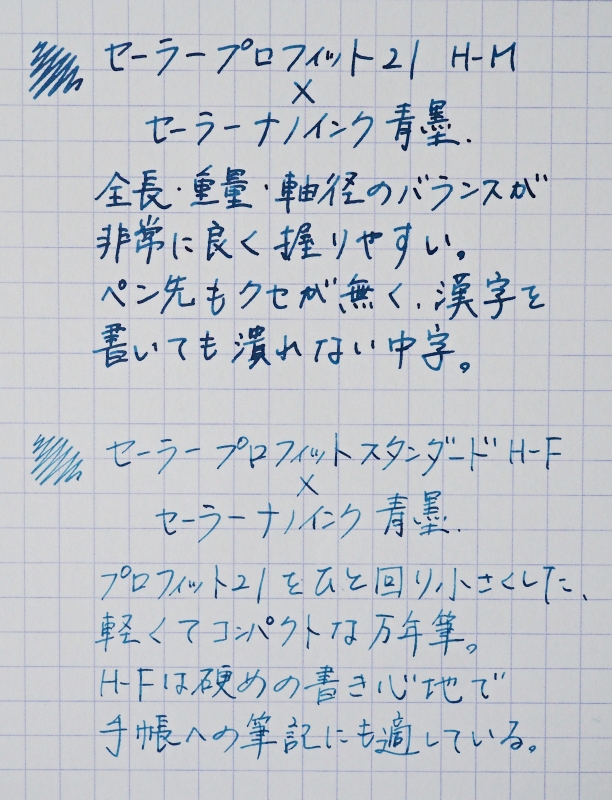 セーラープロフィット21 H-M
×
セーラーナノインク 青墨.
全長・重量・軸径のバランスが
非常に良く握りやすい。
ペン先もクセが無く、漢字を
書いても潰れない中字。
セーラープロフィットスタンダード H-F
×
セーラーナノインク 青墨.
プロフィット21をひと回り小さくした、
軽くてコンパクトな万年筆。
H-Fは硬めの書き心地で
手帳への筆記にも適している。